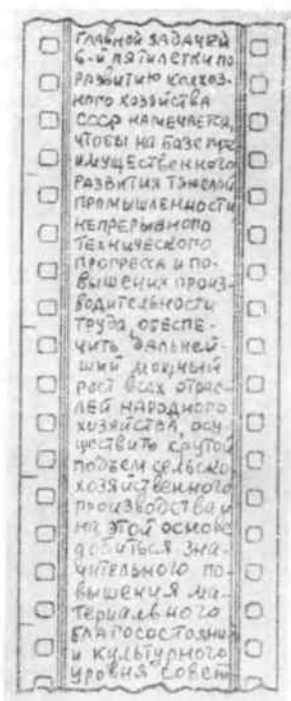 ГЛАВНОЙ ЗАДАЧЕЙ
6-й ПЯТИЛЕТКИ ПО
РАЗВИТИЮ КОЛХОЗ-
НОГО ХОЗЯЙСТВА
СССР НАМЕЧАЕТСЯ,
ЧТОБЫ НА БАЗЕ ПРЕ
ИМУЩЕСТВЕННОГО
РАЗВИТИЯ ТЯЖЕЛОЙ
ПРОМЫШЛЕННОСТИ
НЕПРЕРЫВНОГО
ТЕХНИЧЕСКОГО
ПРОГРЕССА И ПО-
ВЫШЕНИЯ ПРОИЗ-
ВОДИТЕЛЬНОСТИ
ТРУДА, ОБЕСПЕ-
ЧИТЬ ДАЛЬНЕЙ-
ШИЙ МОЩНЫЙ
РОСТ ВСЕХ ОТРАС-
ЛЕЙ НАРОДНОГО
ХОЗЯЙСТВА, ОСУ-
ЩЕСТВИТЬ КРУТОЙ
ПОДЪЕМ СЕЛЬСКО
ХОЗЯЙСТВЕННОГО
ПРОИЗВОДСТВА И
НА ЭТОЙ ОСНОВЕ
ДОБИТЬСЯ ЗНА-
ЧИТЕЛЬНОГО ПО-
ВЫШЕНИЯ МА-
ТЕРИАЛЬНОГО
БЛАГОСОСТОЯНИЯ
И КУЛЬТУРНОГО
УРОВНЯ СОВЕТ